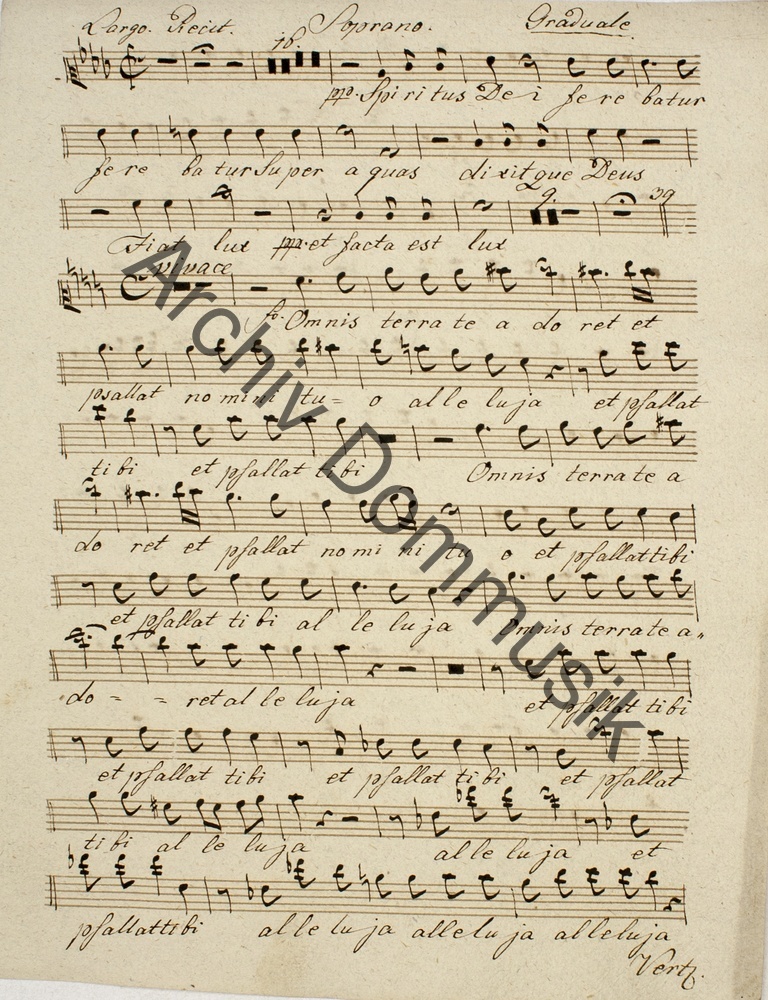 Largo. Recit. Soprano. Graduale.
16.
pp. Spiritus Dei fere batur
fere batur super aquas dixitque Deus
9. 39
Fiat lux pp. et facta est lux
vivace
fo. Omnis terra te ado ret et
psallat nomini tu= o alleluja et psallat
tibi et psallat tibi Omnis terra te a
do ret et psallat nomini tu o et psallat tibi
et psallat tibi alleluja Omnis terra te a,,
do = = ret alleluja et psallat tibi
et psallat tibi et psallat tibi et psallat
tibi alleluja alleluja et
psallat tibi alleluja alleluja alleluja
Vert.
Archiv Dommusik